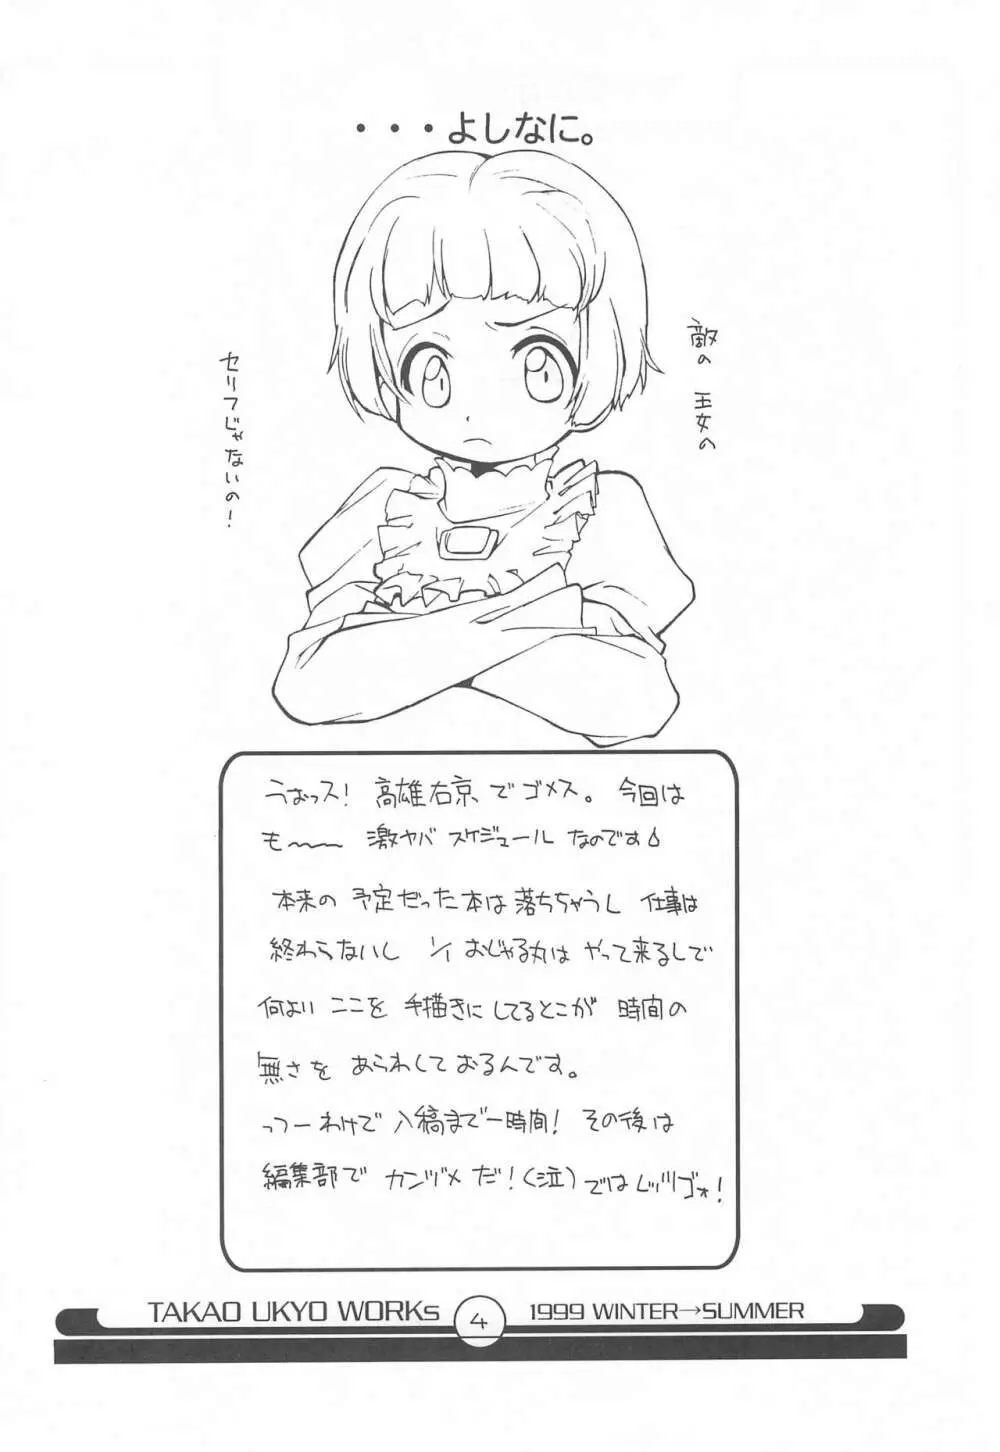 ・・・よしなに。
敵の 王女の
セリフじゃないの!
うおっス! 高雄右京、でゴメス。今回は
も〜〜 激ヤバ スケジュール なのです
本来の 予定だった本は落ちちゃうし 仕事は
終わらないし おじゃる丸は やって来るしで
何よい ココを 手描きに してるとこが 時間の
無さを あらわして おるんです。
っつーわけで 入稿まで一時間! その後は
編集部で カンヅメ だ!(泣) では レッツゴォ!
TAKAO UKYO WORKs 4 1999 WINTER→SUMMER